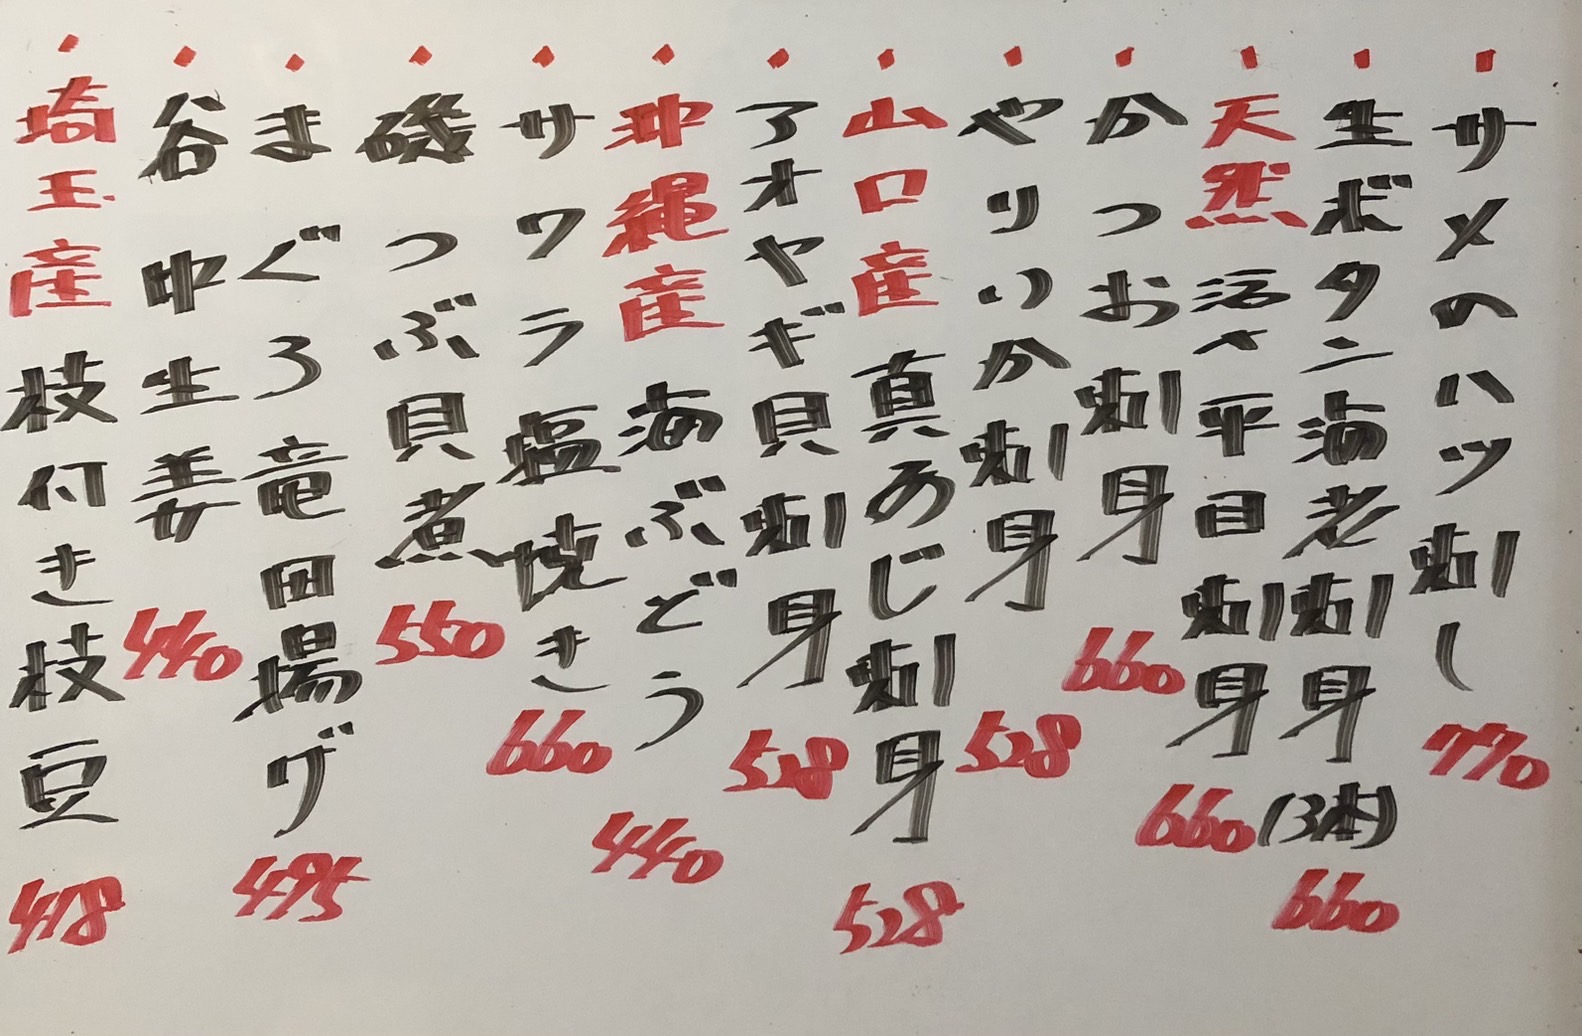 サメのハツ刺し 770
生ボタン海老刺身(3本) 660
天然 活〆平目刺身 660
かつお刺身 660
やりいか刺身 528
山口産 真あじ刺身 528
アオヤギ貝刺身 528
沖縄産 海ぶどう 440
サワラ塩焼き 660
磯つぶ貝煮 550
まぐろ竜田揚げ 495
谷中生姜 440
埼玉産 枝付き枝豆 418